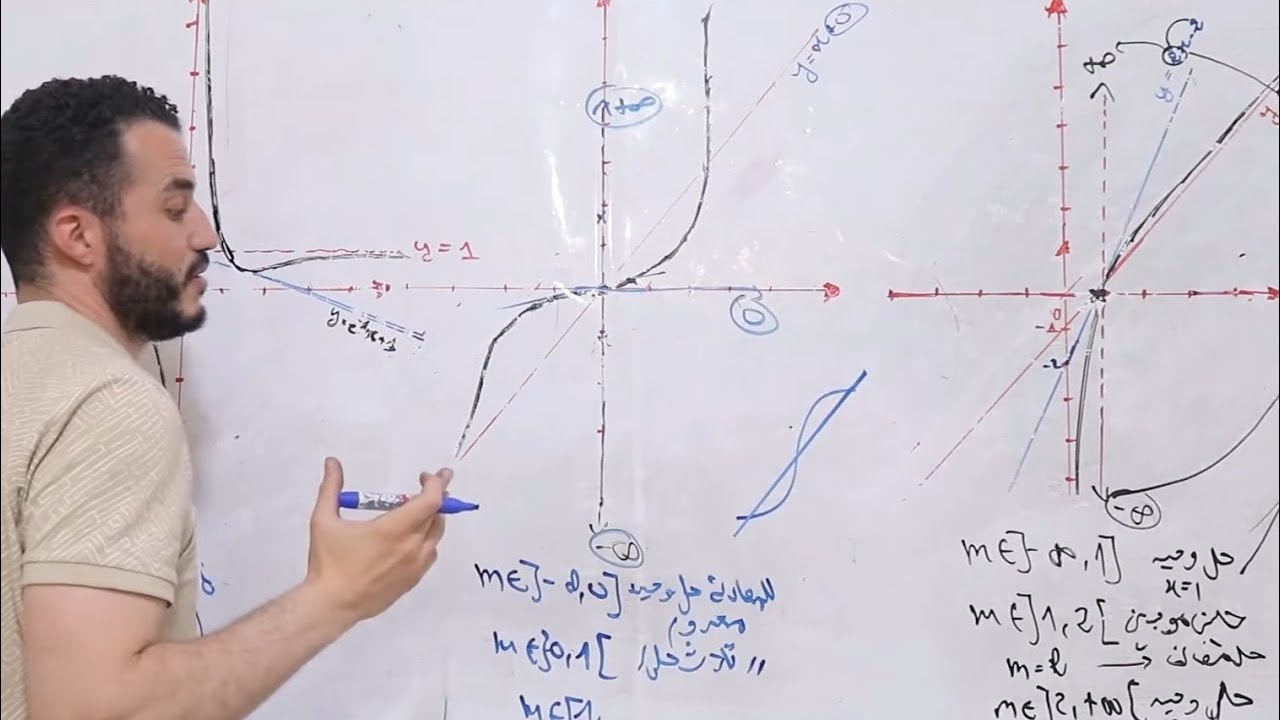 y = 1
+∞
y = x + 0
0
-∞
m ∈ ]-∞, 0] للمعادلة حل وحيد
معدوم
m ∈ ]0, 1[ // ثلاث حلول
m ∈ [1,
+∞
-1
-2
-∞
m ∈ ]-∞, 1] حل وحيد
x = 1
m ∈ ]1, 2[ حلين موجبين
m = 2 → حل مضاعف
m ∈ ]2, +∞[ حل وحيد